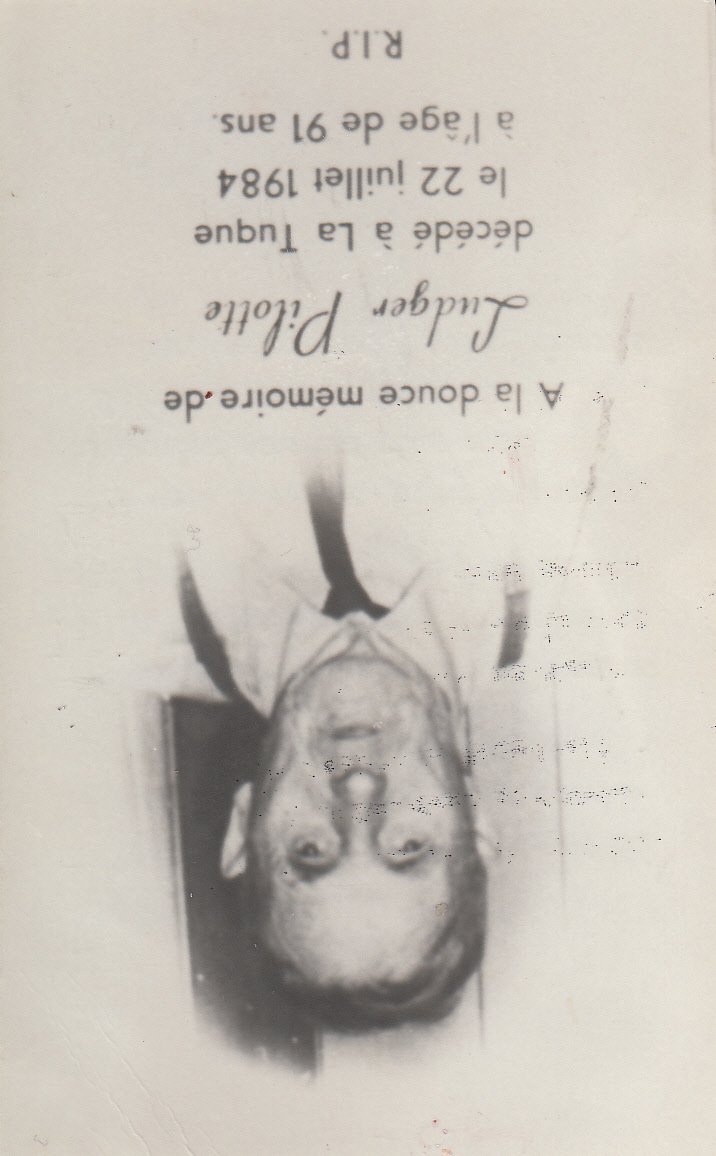 A la douce mémoire de
Ludger Pilotte
décédé à La Tuque
le 22 juillet 1984
à l'âge de 91 ans.
R.I.P.